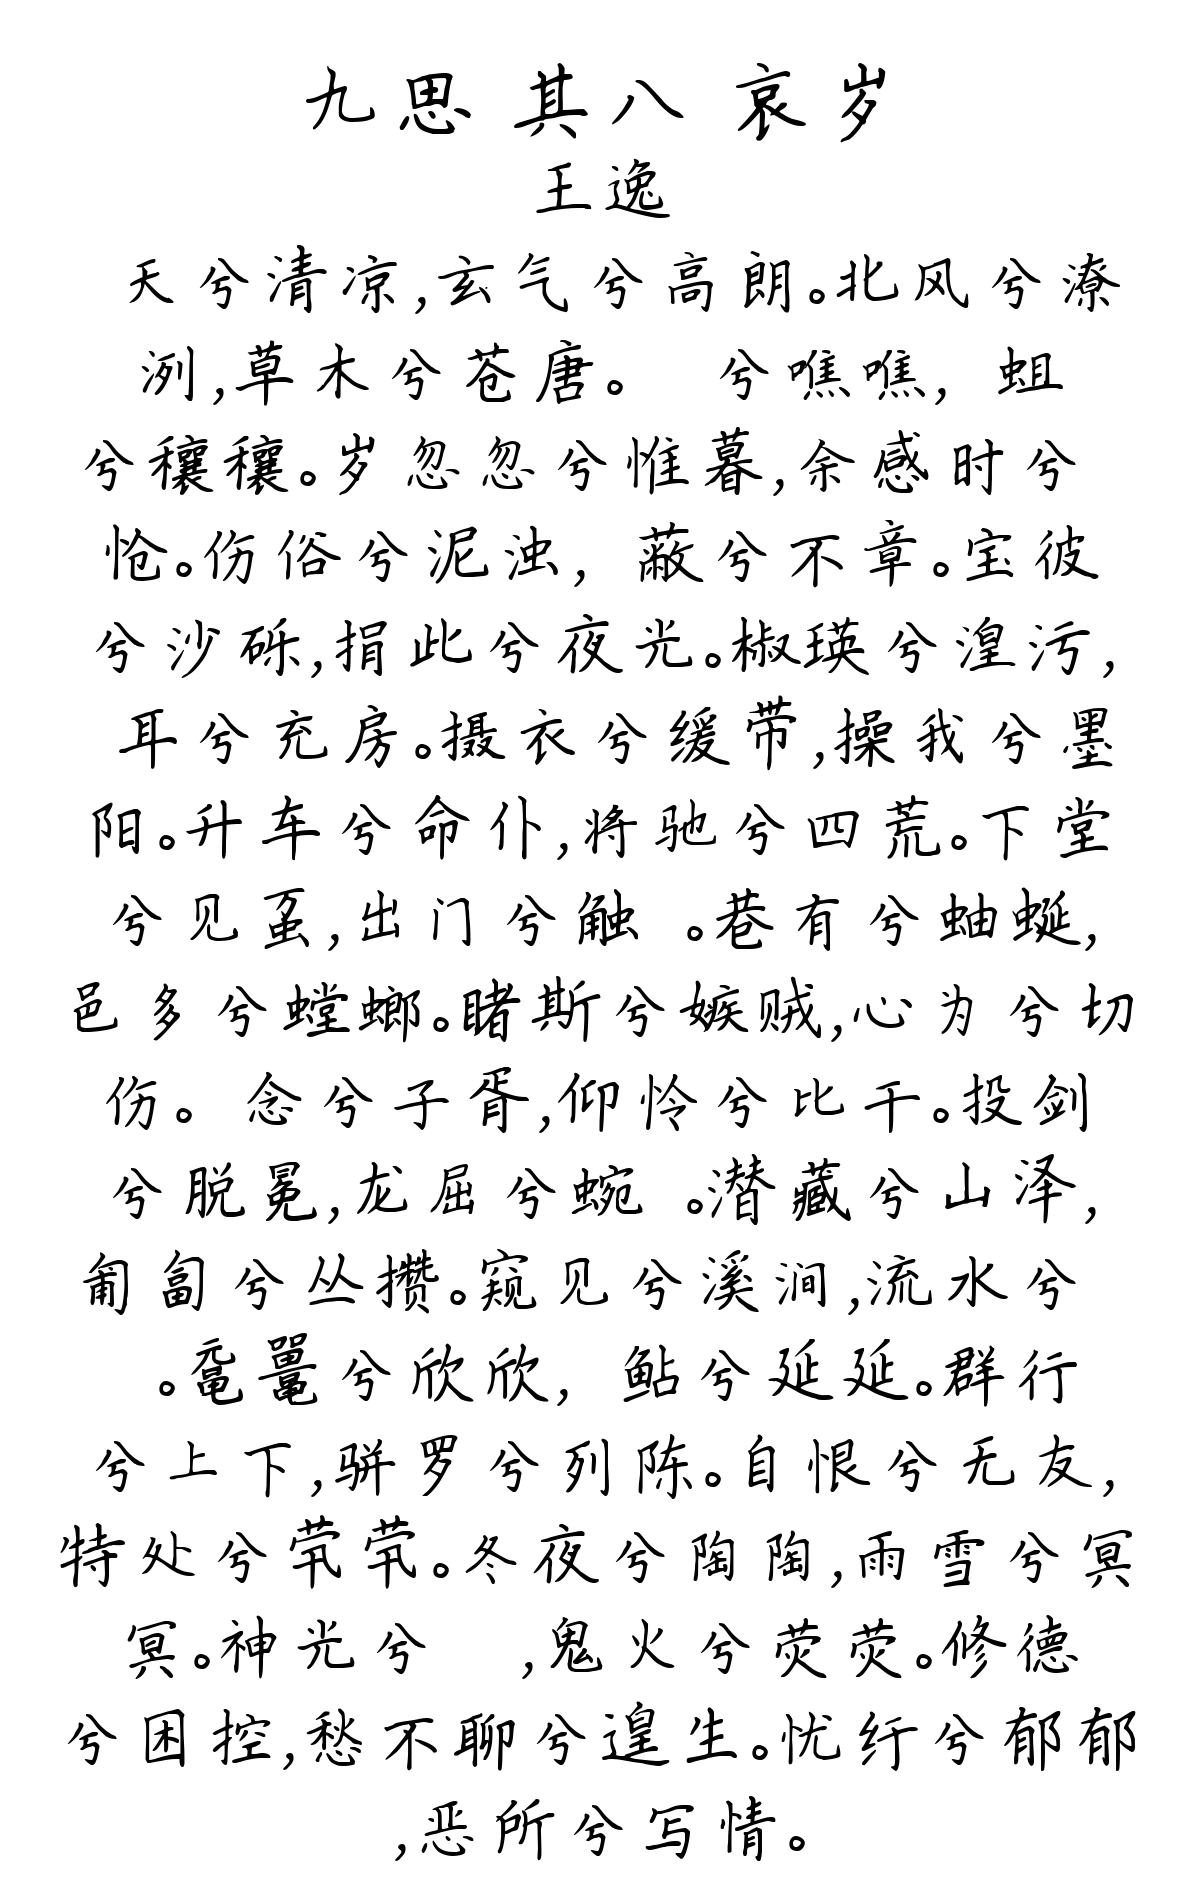 九思 其八 哀岁
王逸
天兮清凉,玄气兮高朗。北风兮潦
洌,草木兮苍唐。 兮噍噍, 蛆
兮穰穰。岁忽忽兮惟暮,余感时兮
怆。伤俗兮泥浊, 蔽兮不章。宝彼
兮沙砾,捐此兮夜光。椒瑛兮湟污,
耳兮充房。摄衣兮缓带,操我兮墨
阳。升车兮命仆,将驰兮四荒。下堂
兮见虿,出门兮触 。巷有兮蚰蜒,
邑多兮螳螂。睹斯兮嫉贼,心为兮切
伤。 念兮子胥,仰怜兮比干。投剑
兮脱冕,龙屈兮蜿 。潜藏兮山泽,
匍匐兮丛攒。窥见兮溪涧,流水兮
。鼋鼍兮欣欣, 鲇兮延延。群行
兮上下,骈罗兮列陈。自恨兮无友,
特处兮茕茕。冬夜兮陶陶,雨雪兮冥
冥。神光兮 ,鬼火兮荧荧。修德
兮困控,愁不聊兮遑生。忧纡兮郁郁
,恶所兮写情。